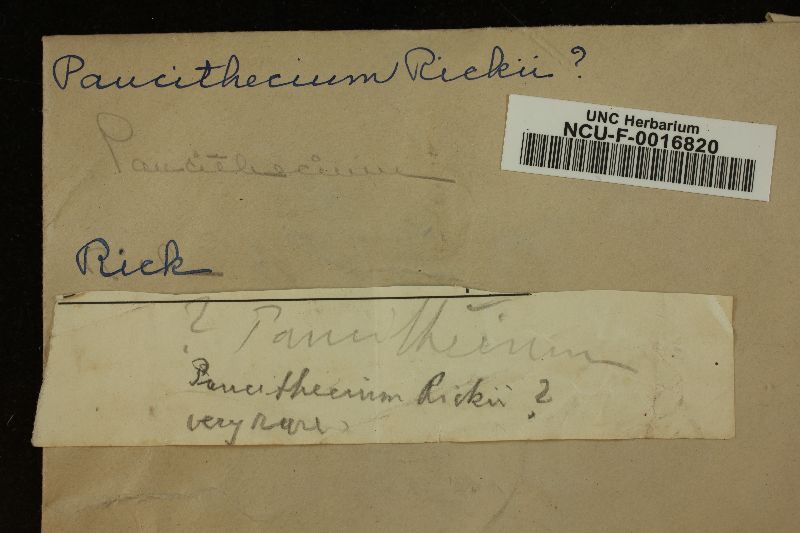 Paucithecium Rickii ?
UNC Herbarium
NCU-F-0016820
Paucithecium
Rick
? Paucithecium
Paucithecium Rickii ?
very rare